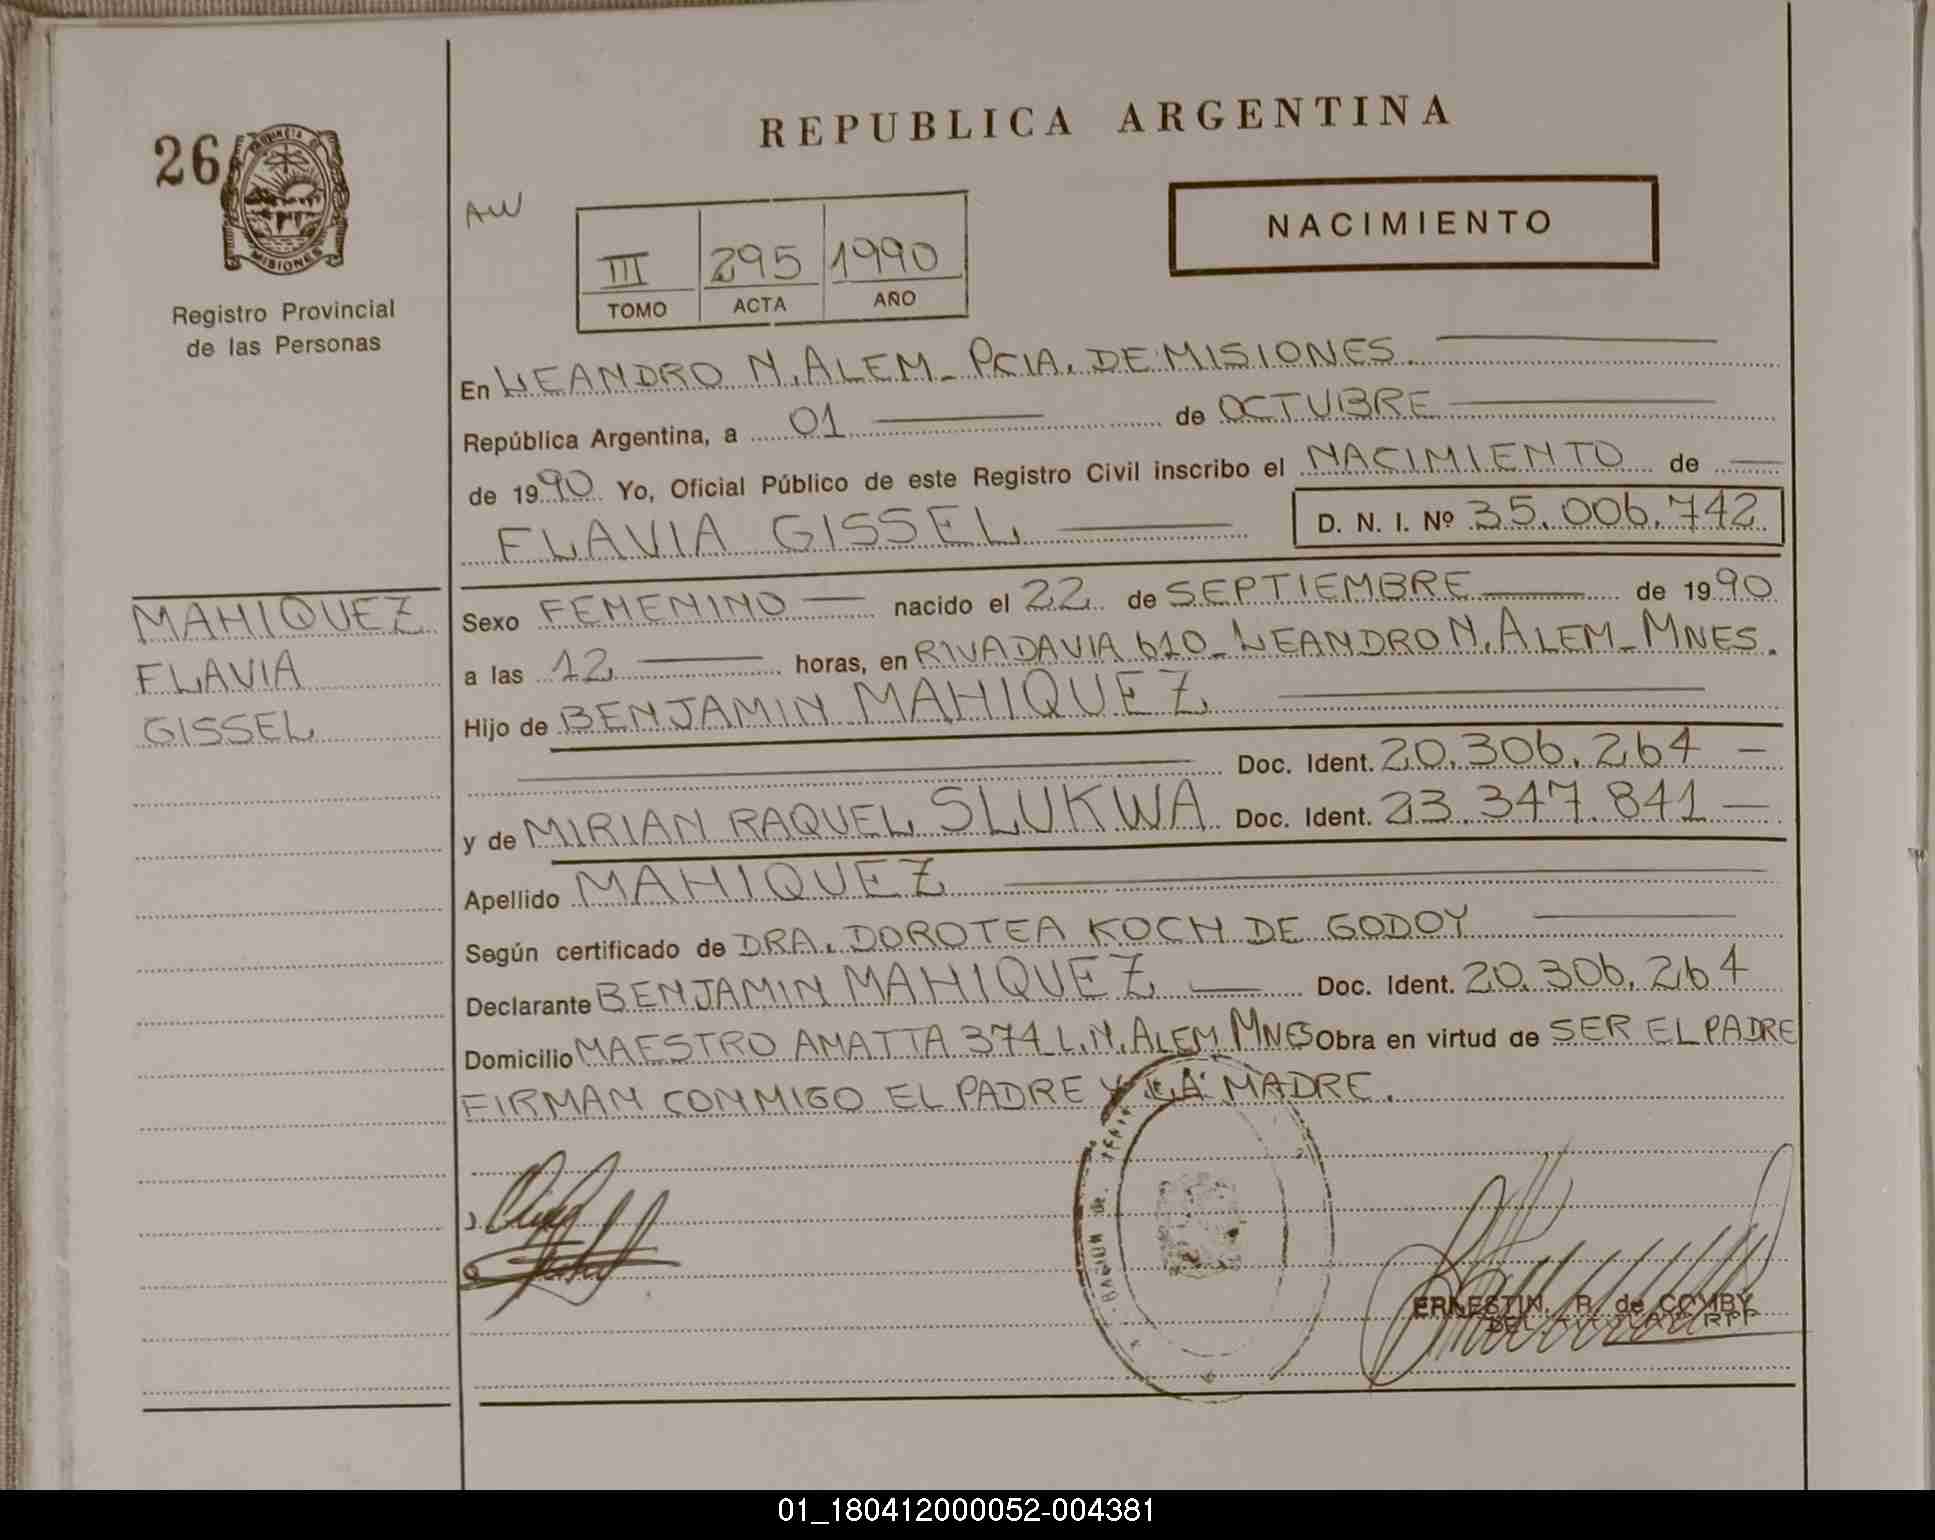 REPUBLICA ARGENTINA
26
PROVINCIA
MISIONES
Registro Provincial
de las Personas
AW
III 295 1990
TOMO ACTA AÑO
NACIMIENTO
En LEANDRO N. ALEM - PCIA. DE MISIONES.
República Argentina, a 01 de OCTUBRE
de 1990 Yo, Oficial Público de este Registro Civil inscribo el NACIMIENTO de
FLAVIA GISSEL D. N. I. Nº 35.006.742
MAHIQUEZ
FLAVIA
GISSEL
Sexo FEMENINO nacido el 22 de SEPTIEMBRE de 1990
a las 12 horas, en RIVADAVIA 610 - LEANDRO N. ALEM - MNES.
Hijo de BENJAMIN MAHIQUEZ
Doc. Ident. 20.306.264
y de MIRIAN RAQUEL SLUKWA Doc. Ident. 23.347.841
Apellido MAHIQUEZ
Según certificado de DRA. DOROTEA KOCH DE GODOY
Declarante BENJAMIN MAHIQUEZ Doc. Ident. 20.306.264
Domicilio MAESTRO AMATTA 374 L.N. ALEM MNES Obra en virtud de SER EL PADRE
FIRMAN CONMIGO EL PADRE Y LA MADRE.
ERNESTIN. R. de COMBY
01_180412000052-004381